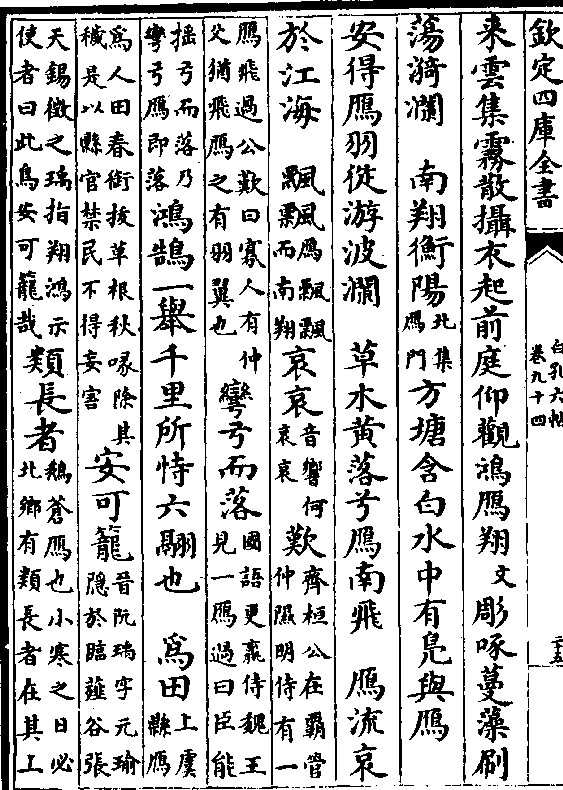 欽定四庫全書
白孔六帖
卷九十四
二十五
来雲集霧散攝衣起前庭仰觀鴻鴈翔文彫啄蔓藻刷
蕩漪瀾　南翔衡陽北集鴈門方塘含白水中有鳬與鴈
安得鴈羽從游波瀾　草木黄落兮鴈南飛　鴈流哀
於江海　飄飄鴈飄飄而南翔哀哀音響何哀哀歎齊桓公在霸管仲隰明侍有一
鴈飛過公歎曰寡人有仲父猶飛鴈之有羽翼也彎弓而落國語更羸侍魏王見一鴈過曰臣能
揺弓而落乃彎弓鴈即落鴻鵠一舉千里所恃六翮也　為田上虞縣鴈
為人田春銜拔草根秋啄除其穢是以縣官禁民不得妄害安可籠晉阮瑀字元瑜隱於臨薤谷張
天錫徵之瑀指翔鴻示使者曰此鳥安可籠哉類長者鵝蒼鴈也小寒之日必北鄉有類長者在其上